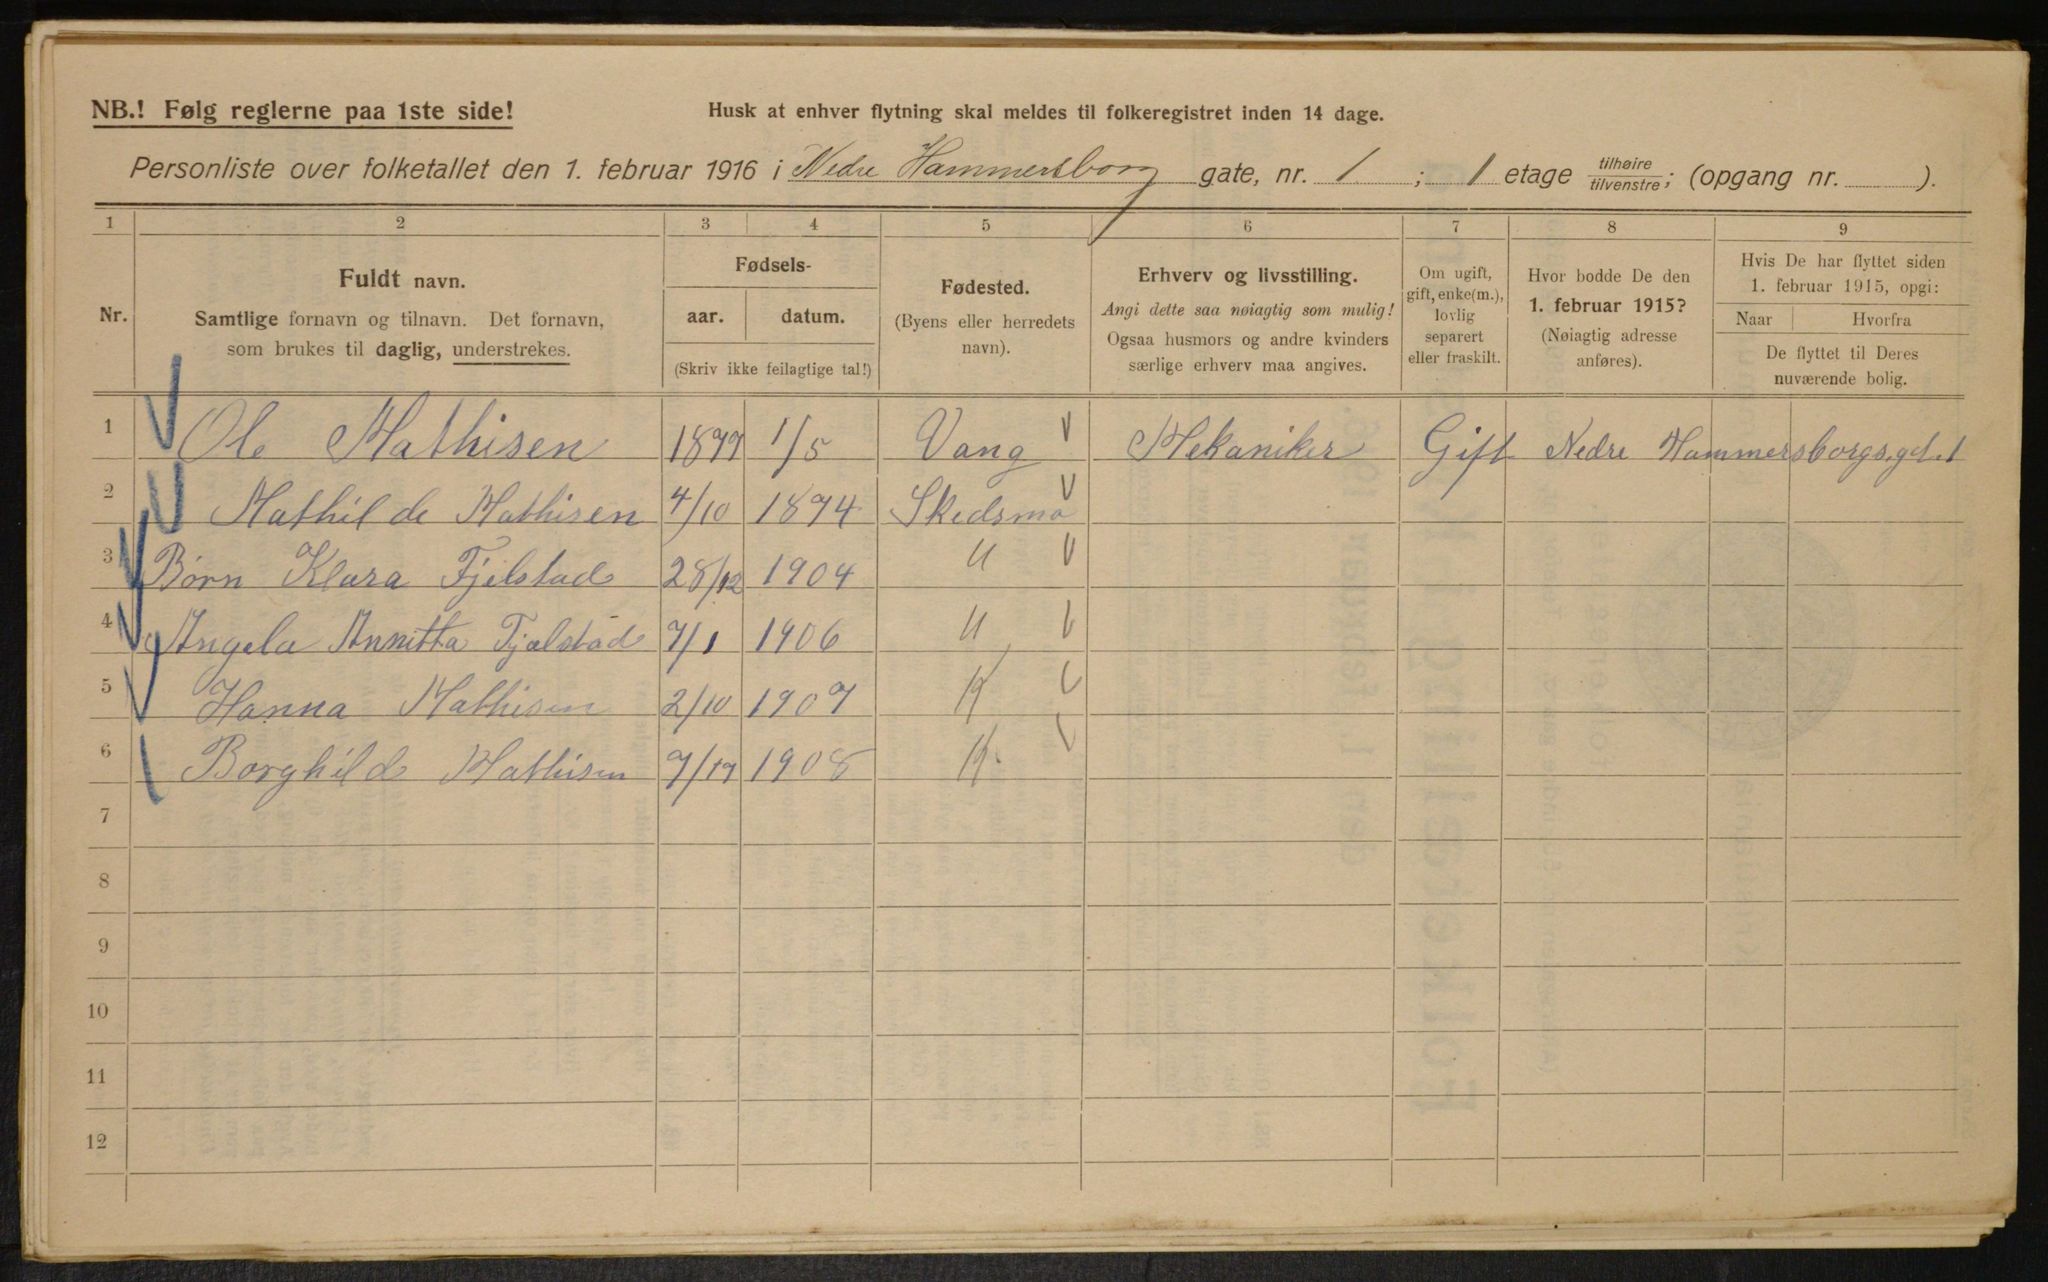 NB.! Følg reglerne paa 1ste side!
Husk at enhver flytning skal meldes til folkeregistret inden 14 dage.
Personliste over folketallet den 1. februar 1916 i Nedre Hammersborg gate, nr. 1 ; 1 etage tilhøire/tilvenstre; (opgang nr. ).
1 2 3 4 5 6 7 8 9
Nr.
Fuldt navn.
Samtlige fornavn og tilnavn. Det fornavn,
som brukes til daglig, understrekes.
Fødsels-
aar. datum.
(Skriv ikke feilagtige tal!)
Fødested.
(Byens eller herredets
navn).
Erhverv og livsstilling.
Angi dette saa nøiagtig som mulig!
Ogsaa husmors og andre kvinders
særlige erhverv maa angives.
Om ugift,
gift, enke(m.),
lovlig
separert
eller fraskilt.
Hvor bodde De den
1. februar 1915?
(Nøiagtig adresse
anføres).
Hvis De har flyttet siden
1. februar 1915, opgi:
Naar Hvorfra
De flyttet til Deres
nuværende bolig.
1 Ole Mathisen 1877 1/5 Vang Mekaniker Gift Nedre Hammersborgs.gd.1
2 Mathilde Mathisen 4/10 1874 Skedsmo
3 Børn Klara Fjelstad 28/12 1904 "
4 Angela Annitta Fjelstad 7/1 1906 "
5 Hanna Mathisen 2/10 1907 K
6 Borghilde Mathisen 7/17 1908 K.
7
8
9
10
11
12